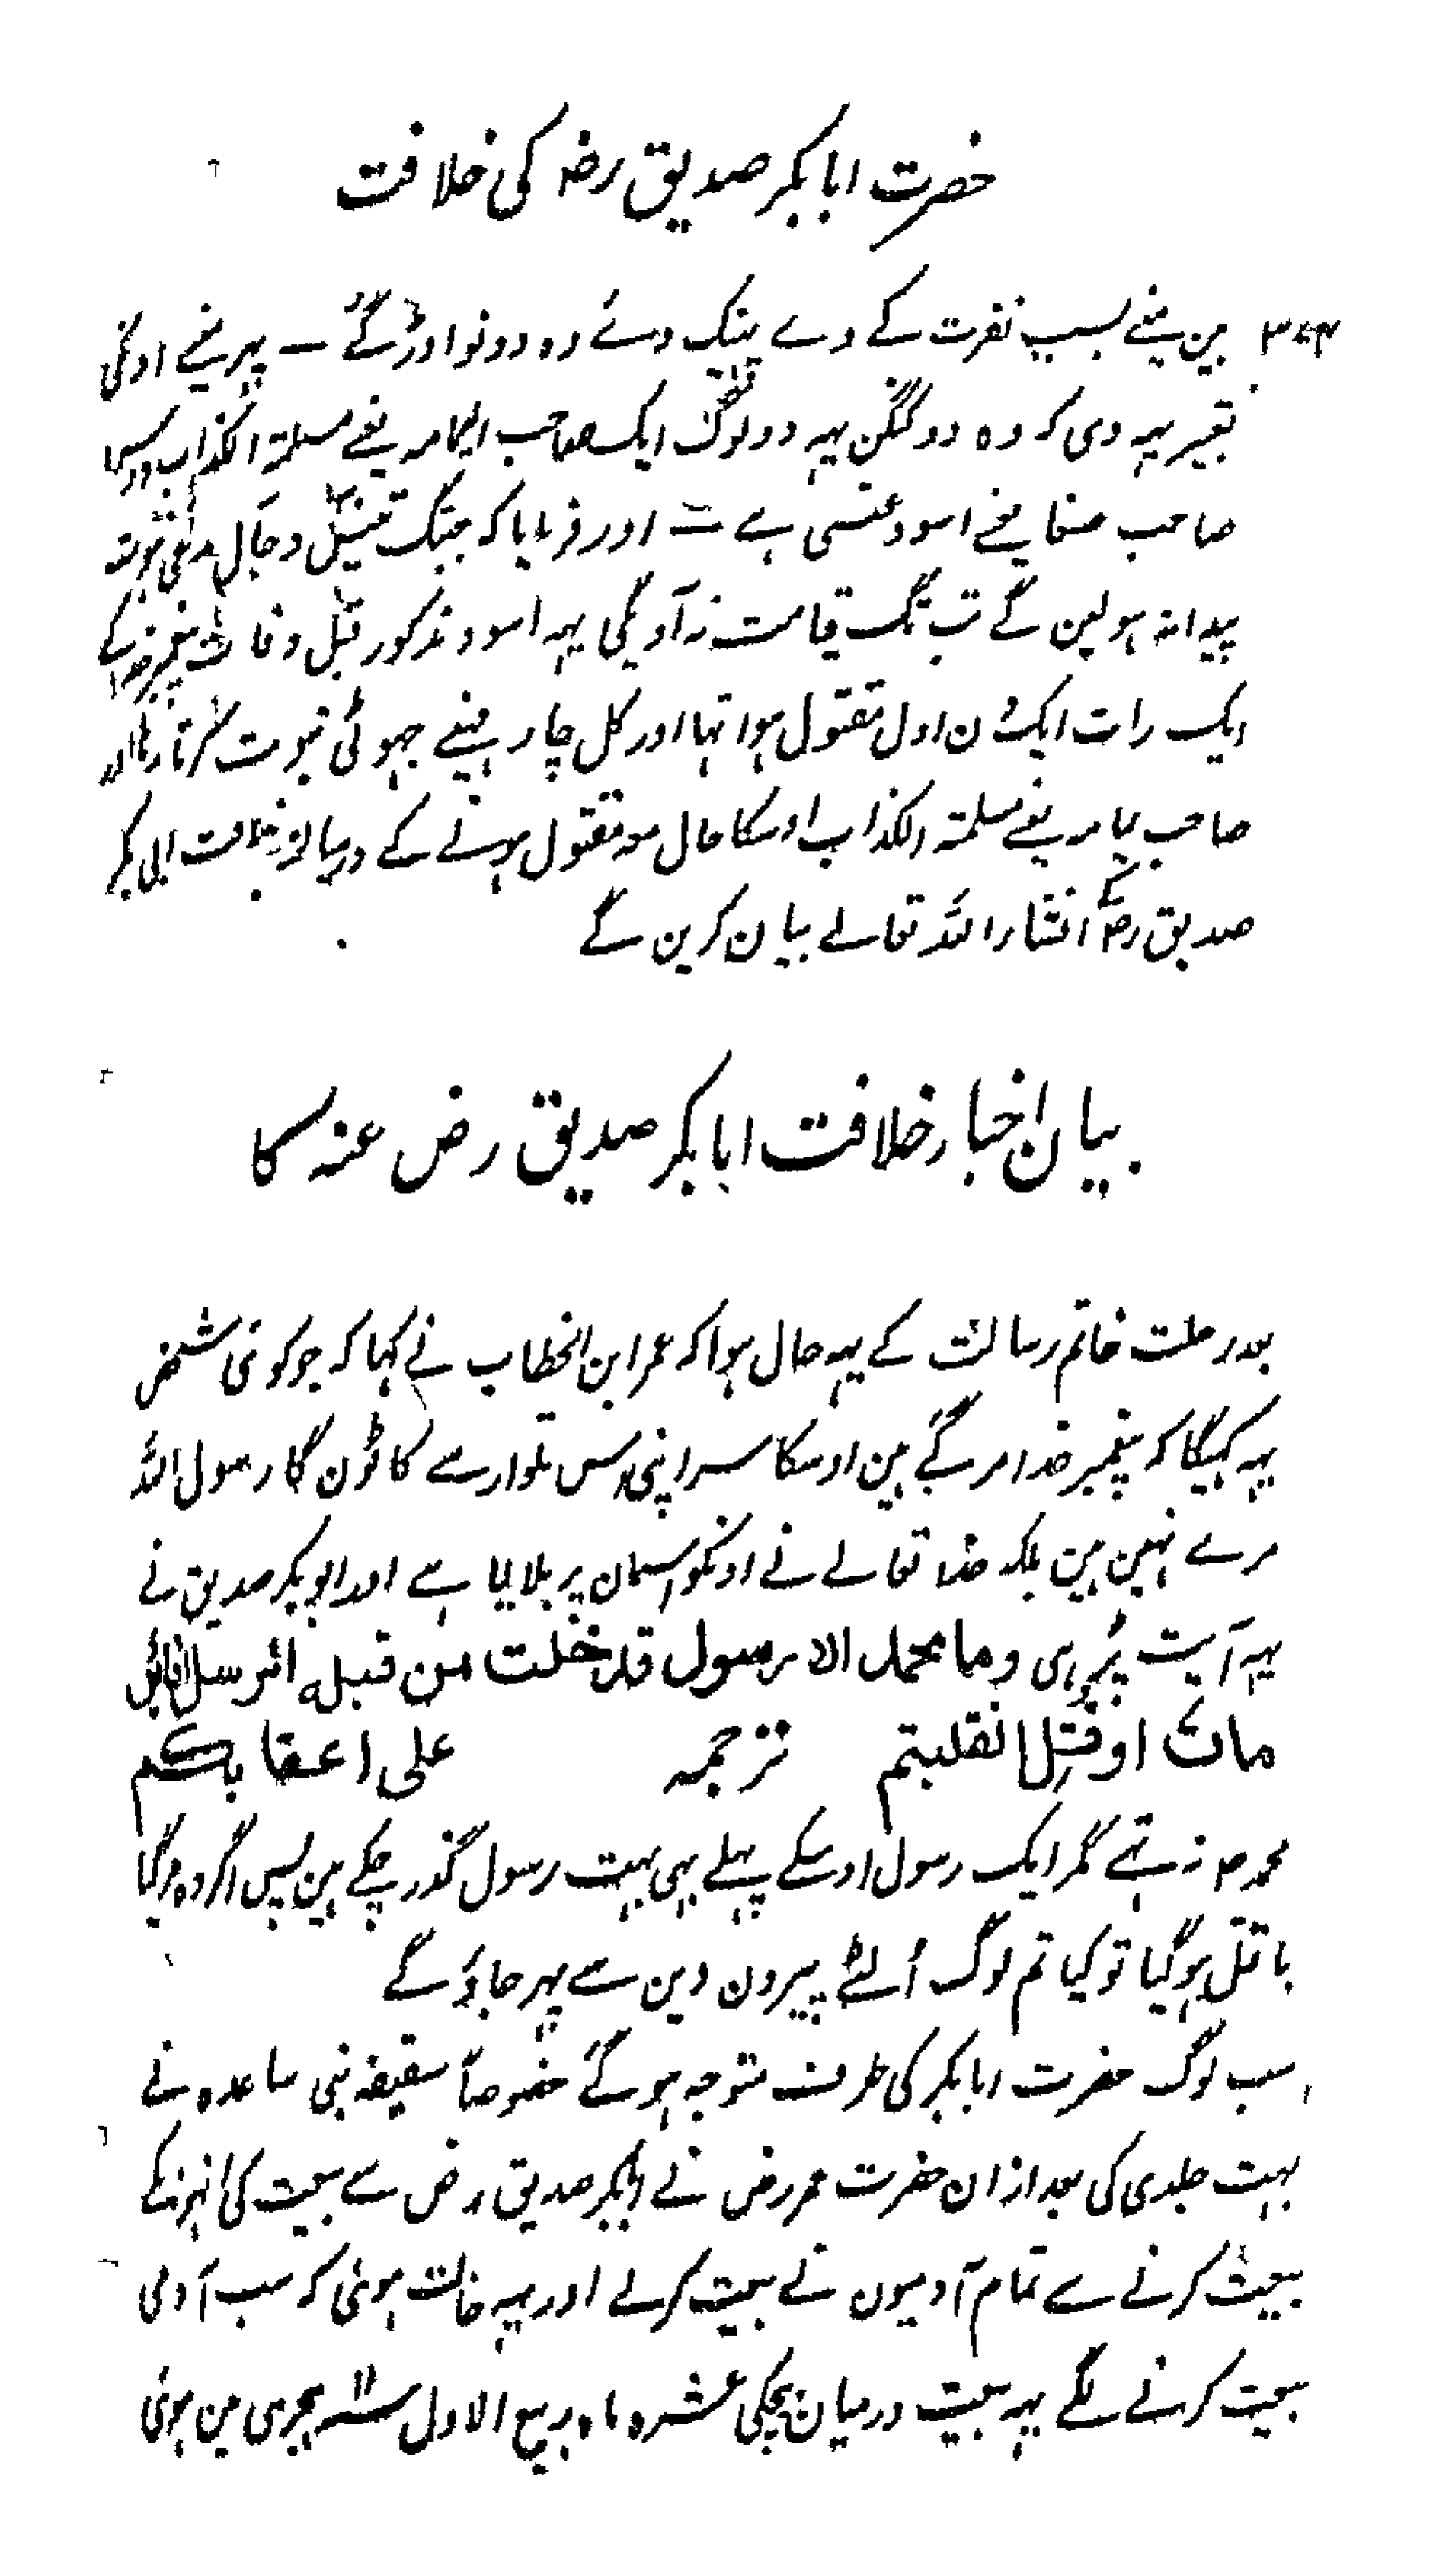 حضرت ابابکر صدیق رضہ کی خلافت
مین مینے بسبب نفرت کے وے پہینک دئے وہ دونو اوڑ گئے — پہر مینے اونکی
تعبیر یہہ دی کہ وہ دو کنگن یہہ دو لوگ ایک صاحب الیمامہ یعنے مسلمۃ الکذاب دوسرا
صاحب صنعا یعنے اسود عنسی ہے — اور فرمایا کہ جبتک تیس دجال مدعی نبوت
پیدا نہ ہولین گے تب تک قیامت نہ آویگی یہہ اسود مذکور قبل وفات پیغمبر خدا کے
ایک رات ایک دن اول مقتول ہوا تہا اور کل چار مہینے جہوٹی نبوت کرتا رہا اور
صاحب یمامہ یعنے مسلمۃ الکذاب اوسکا حال معہ مقتول ہونے کے درمیان خلافت ابی بکر
صدیق رضہ کے انشاء اللہ تعالے بیان کرین گے
بیان اخبار خلافت ابابکر صدیق رض عنہ کا
بعد رحلت خاتم رسالت کے یہہ حال ہوا کہ عمر ابن الخطاب نے کہا کہ جو کوئی شخص
یہہ کہیگا کہ پیغمبر خدا مر گئے ہین اوسکا سر اپنی اس تلوار سے کاٹون گا رسول اللہ
مرے نہین ہین بلکہ خدا تعالے نے اونکو اسمان پر بلا لیا ہے اور ابوبکر صدیق نے
یہہ آیت پڑہی وما محمد الا رسول قد خلت من قبله الرسل افائن
مات او قتل انقلبتم علی اعقابکم ترجمہ
محمد صہ نہ تہے مگر ایک رسول اوسکے پہلے بہی بہت رسول گذر چکے ہین پس اگر وہ مر گیا
یا قتل ہو گیا تو کیا تم لوگ اُلٹے پیرون دین سے پہر جاؤ گے
سب لوگ حضرت ابابکر کی طرف متوجہ ہو گئے خصوصاً سقیفہ بنی ساعدہ نے
بہت جلدی کی بعد ازان حضرت عمر رض نے ابابکر صدیق رض سے بیعت کی انہونکے
بیعت کرنے سے تمام آدمیون نے بیعت کر لے اور یہہ حالت ہوئی کہ سب آدمی
بیعت کرنے لگے یہہ بیعت درمیان بیچکی عشرہ ماہ ربیع الاول سنہ ۱۱ ہجری مین ہوئی